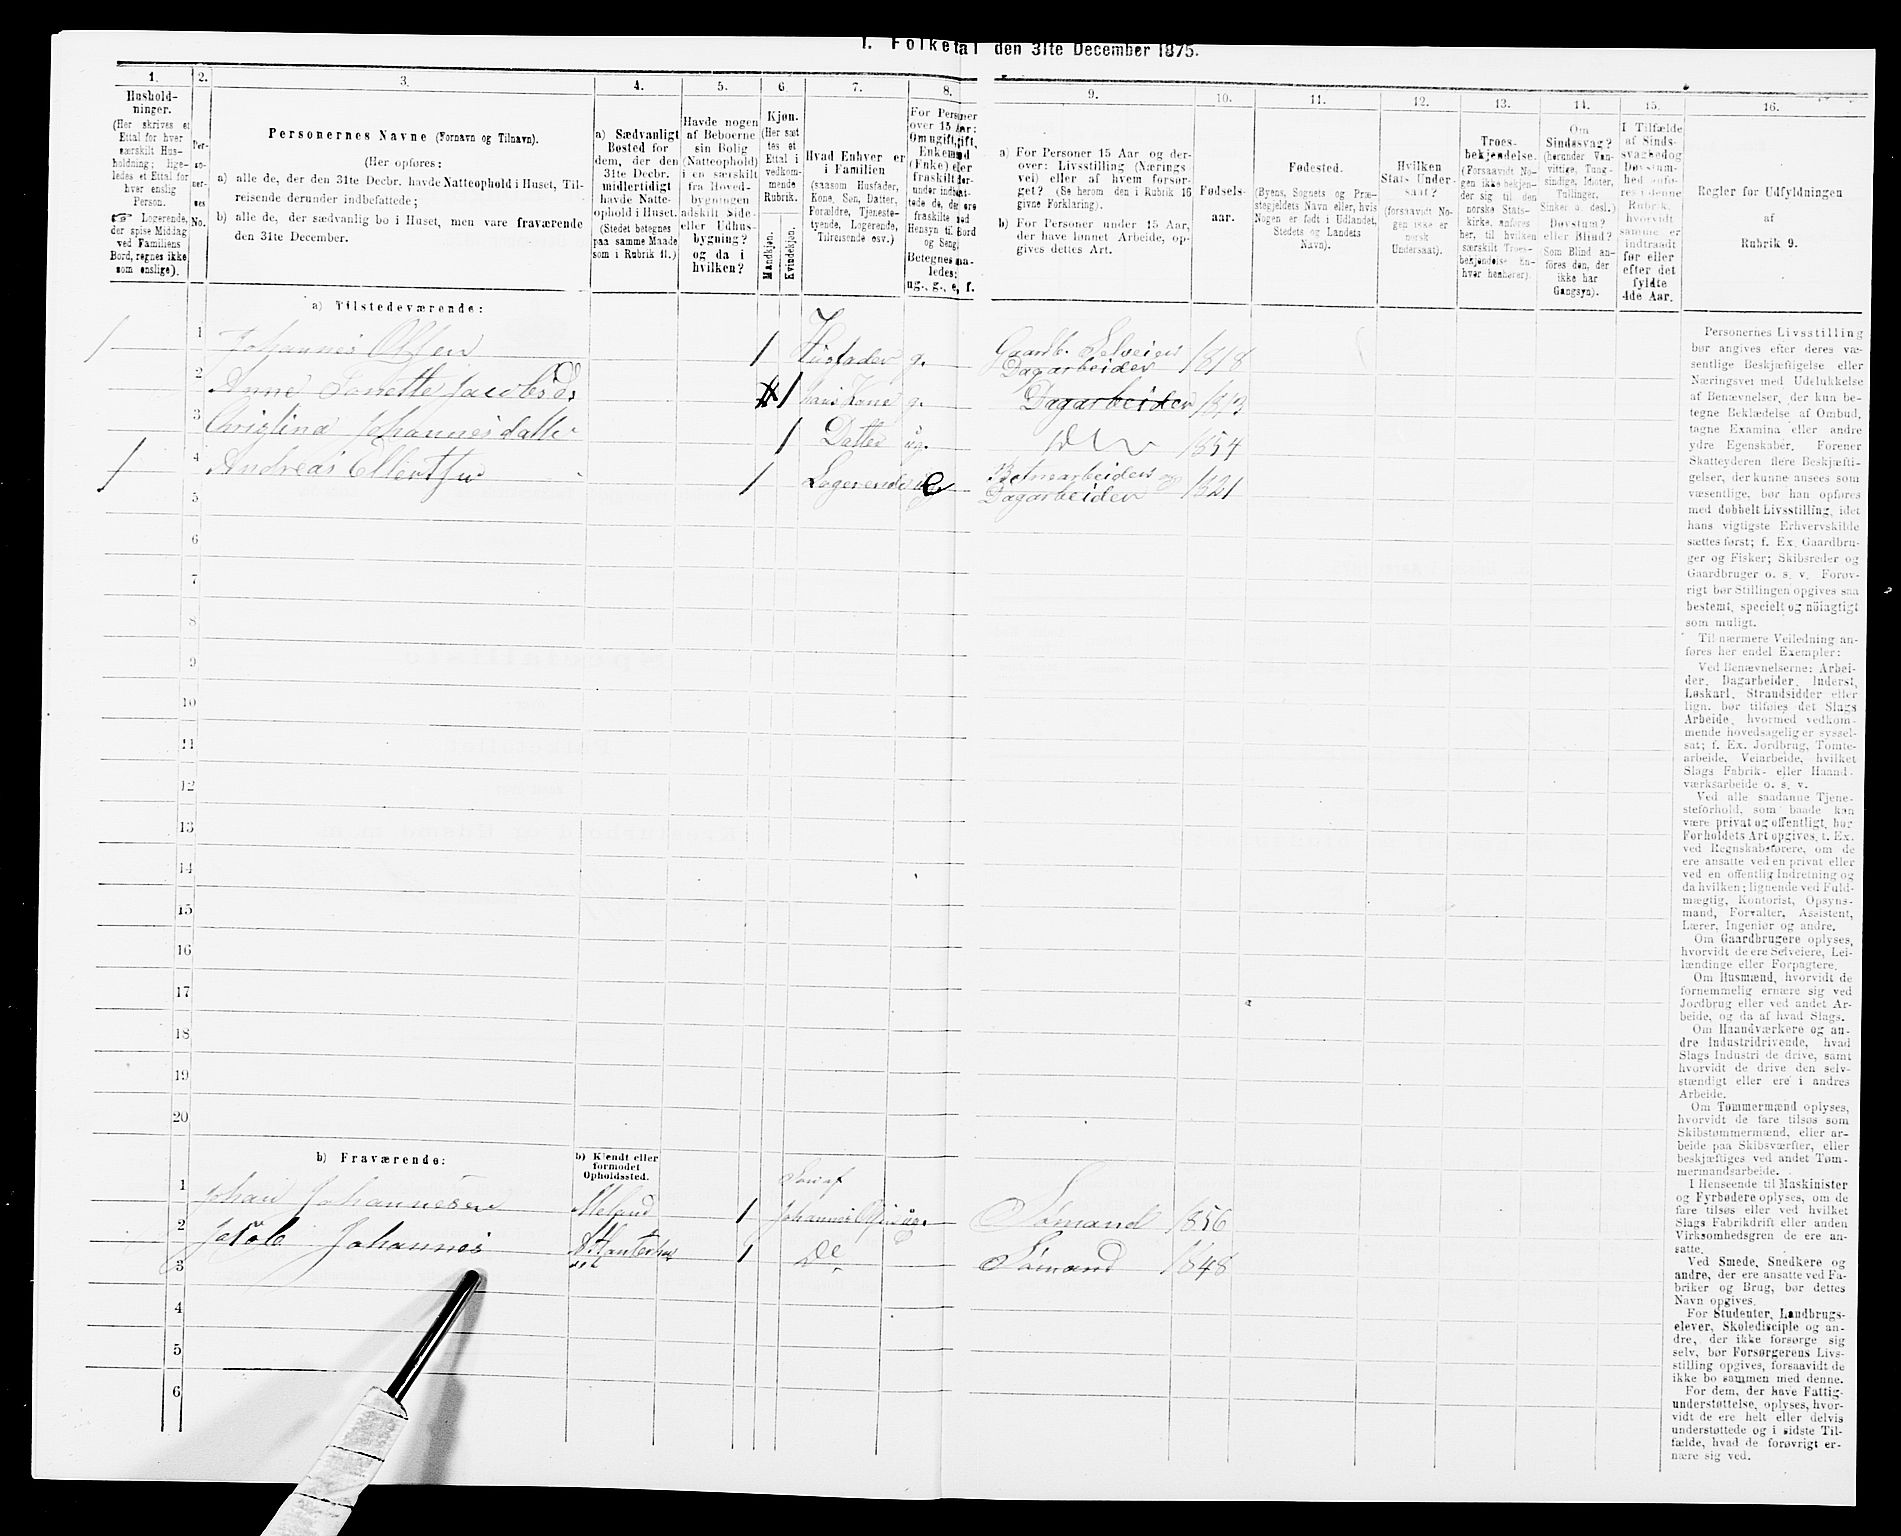 I. Folketal den 31te December 1875.
1. 2. 3. 4. 5. 6 7. 8. 9. 10. 11. 12. 13. 14. 15. 16.
Hushold-
ninger.
(Her skrives et
Ettal for hver
særskilt Hus-
holdning; lige-
ledes et Ettal for
hver enslig
Person.
☞ Logerende,
der spise Middag
ved Familiens
Bord, regnes ikke
som enslige).
Per-
so-
ner-
nes
No.
Personernes Navne (Fornavn og Tilnavn).
(Her opføres:
a) alle de, der den 31te Decbr. havde Natteophold i Huset, Til-
reisende derunder indbefattede;
b) alle de, der sædvanlig bo i Huset, men vare fraværende
den 31te December.
a) Sædvanligt
Bosted for
dem, der den
31te Decbr.
midlertidigt
havde Natte-
ophold i Huset.
(Stedet betegnes
paa samme Maade
som i Rubrik 11.)
Havde nogen
af Beboerne
sin Bolig
(Natteophold)
i en særskilt
fra Hoved-
bygningen
adskilt Side-
eller Udhus-
bygning?
og da i
hvilken?
Kjøn.
(Her sæt
tes et
Ettal i
vedkom-
mende
Rubrik.
Mandkjøn.
Kvindekjøn.
Hvad Enhver er
i Familien
(saasom Husfader,
Kone, Søn, Datter,
Forældre, Tjeneste-
tyende, Logerende,
Tilreisende osv.)
For Personer
over 15 Aar:
Om ugift, gift,
Enkemand
(Enke) eller
fraskilt
Betegnes saa-
ledes:
ug., g., e, f.
a) For Personer 15 Aar og der-
over: Livsstilling (Nærings-
vei) eller af hvem forsør-
get? (Se herom den i Rubrik 16
givne Forklaring).
b) For Personer under 15 Aar,
der have lønnet Arbeide, op-
gives dettes Art.
Fødsels-
aar.
Fødested.
(Byens, Sognets og Præ-
stegjeldets Navn eller, hvis
Nogen er født i Udlandet,
Stedets og Landets
Navn).
Hvilken
Stats Under-
saat?
(forsaavidt No-
gen ikke er
norsk
Undersaat).
Troes-
bekjendelse.
(Forsaavidt No-
gen ikke bekjen-
der sig til den
norske Stats-
kirke, anføres
her, til hvilken
særskilt Troes-
bekjendelse En-
hver henhører).
Om
Sindssvag?
(herunder Van-
vittige, Tung-
sindige, Idioter,
Tullinger,
Sinker o. desl.)
Døvstum?
eller Blind?
(Som Blind an-
føres den, der
ikke har
Gangsyn).
I Tilfælde
af Sinds-
svaghed og
Døvstum-
hed anfø-
res i denne
Rubrik,
hvorvidt
samme er
indtraadt
før eller
efter det
fyldte
4de Aar.
Regler for Udfyldningen
af
Rubrik 9.
a) Tilstedeværende:
1 Johannis Olsen 1 Husfader g. Gaardb. Selveier Dagarbeider 1818
2 Anne 1 hans Kone g. Dagarbeider 1813
3 Christina Johannisdatter 1 Datter ug. 1854
4 Andreas 1 Logerende e Dagarbeider 1821
5
6
7
8
9
10
11
12
13
14
15
16
17
18
19
20
b) Fraværende:
b) Kjendt eller
formodet
Opholdssted.
Søn af
1 Johan Johannesen 1 Johannis ug. Sømand 1856
2 Jakob Johannis 1 Do Sømand 1848
3
4
5
6
Personernes Livsstilling
bør angives efter deres væ-
sentlige Beskjæftigelse eller
Næringsvei med Udelukkelse
af Benævnelser, der kun be-
tegne Beklædelse af Ombud,
tagne Examina eller andre
ydre Egenskaber. Forener
Skatteyderen flere Beskjæfti-
gelser, der kunne ansees som
væsentlige, bør han opføres
med dobbelt Livsstilling, idet
hans vigtigste Erhvervskilde
sættes først; f. Ex. Gaardbru-
ger og Fisker; Skibsreder og
Gaardbruger o. s. v. Forøv-
rigt bør Stillingen opgives saa
bestemt, specielt og nöiagtigt
som muligt.
Til nærmere Veiledning an-
føres her endel Exempler:
Ved Benævnelserne: Arbei-
der, Dagarbeider, Inderst,
Løskarl, Strandsidder eller
lign. bør tilføies det Slags
Arbeide, hvormed vedkom-
mende hovedsagelig er syssel-
sat; f. Ex. Jordbrug, Tomte-
arbeide, Veiarbeide, hvilket
Slags Fabrik- eller Haand-
værksarbeide o. s. v.
Ved alle saadanne Tjene-
steforhold, som baade kan
være privat og offentligt, bør
Forholdets Art opgives, t. Ex.
ved Regnskabsførere, om de
ere ansatte ved en privat eller
ved en offentlig Indretning og
da hvilken; lignende ved Fuld-
mægtig, Kontorist, Opsyns-
mand, Forvalter, Assistent,
Lærer, Ingeniør og andre.
Om Gaardbrugere oplyses,
hvorvidt de ere Selveiere, Lei-
lændinge eller Forpagtere.
Om Husmænd, hvorvidt de
fornemmelig ernære sig ved
Jordbrug eller ved andet Ar-
beide, og da af hvad Slags.
Om Haandværkere og an-
dre Industridrivende, hvad
Slags Industri de drive, samt
hvorvidt de drive den selv-
stændigt eller ere i andres
Arbeide.
Om Tømmermænd oplyses,
hvorvidt de fare tilsøs som
Skibstømmermænd, eller ar-
beide paa Skibsværfter, eller
beskjæftiges ved andet Tøm-
mermandsarbeide.
I Henseende til Maskinister
og Fyrbødere oplyses, om de
fare tilsøs eller ved hvilket
Slags Fabrikdrift eller anden
Virksomhedsgren de ere an-
satte.
Ved Smede, Snedkere og
andre, der ere ansatte ved Fa-
briker og Brug, bør dettes
Navn opgives.
For Studenter, Landbrugs-
elever, Skoledisciple og an-
dre, der ikke forsørge sig
selv, bør Forsørgerens Livs-
stilling opgives, forsaavidt de
ikke bo sammen med denne.
For dem, der have Fattig-
understøttelse, oplyses, hvor-
vidt de ere helt eller delvis
understøttede og i sidste Til-
fælde, hvad de forøvrigt er-
nære sig ved.